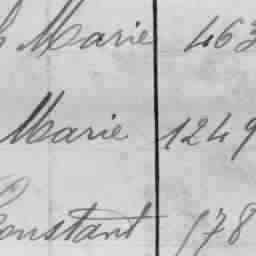 Marie 463
Marie 1249
Constant 178